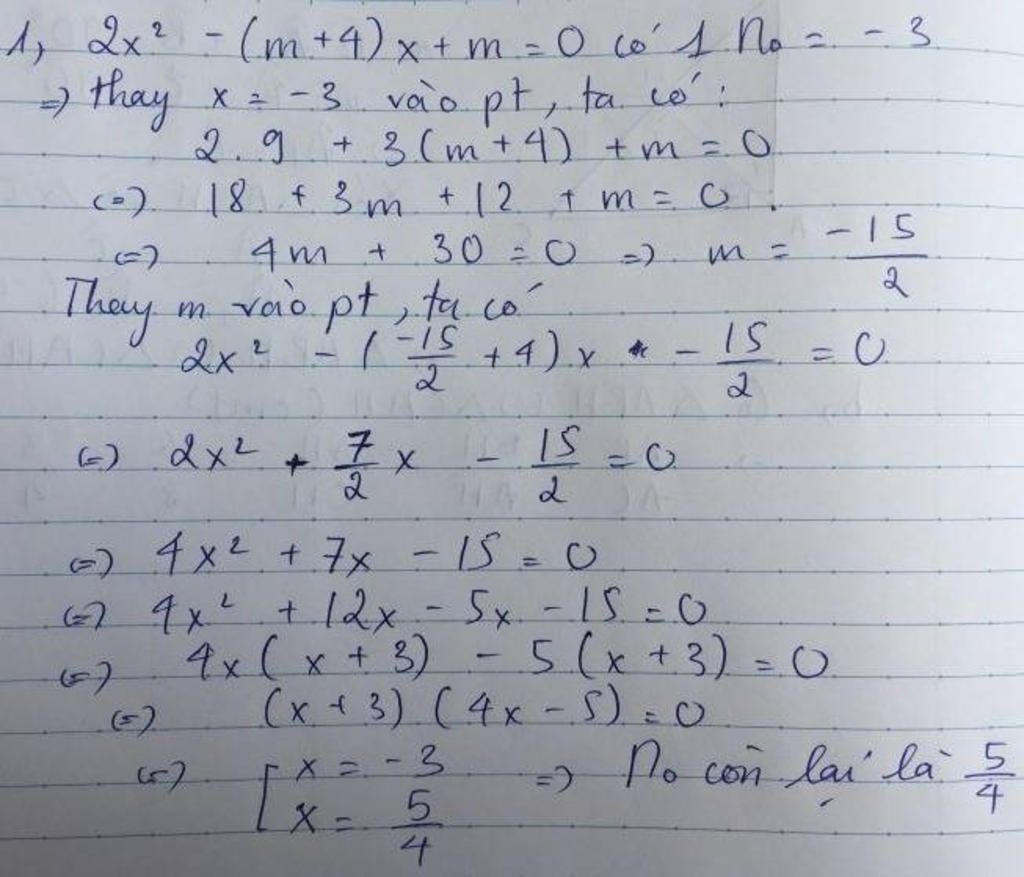 1, 2x² - (m+4)x + m = 0 có 1 n₀ = -3
=> thay x = -3 vào pt, ta có:
2.9 + 3(m+4) + m = 0
(=) 18 + 3m + 12 + m = 0
(=) 4m + 30 = 0 => m = -15/2
Thay m vào pt, ta có
2x² - (-15/2 + 4)x - 15/2 = 0
(=) 2x² + 7/2 x - 15/2 = 0
(=) 4x² + 7x - 15 = 0
(=) 4x² + 12x - 5x - 15 = 0
(=) 4x(x+3) - 5(x+3) = 0
(=) (x+3)(4x-5) = 0
(=) [ x = -3 => n₀ còn lại là 5/4
x = 5/4